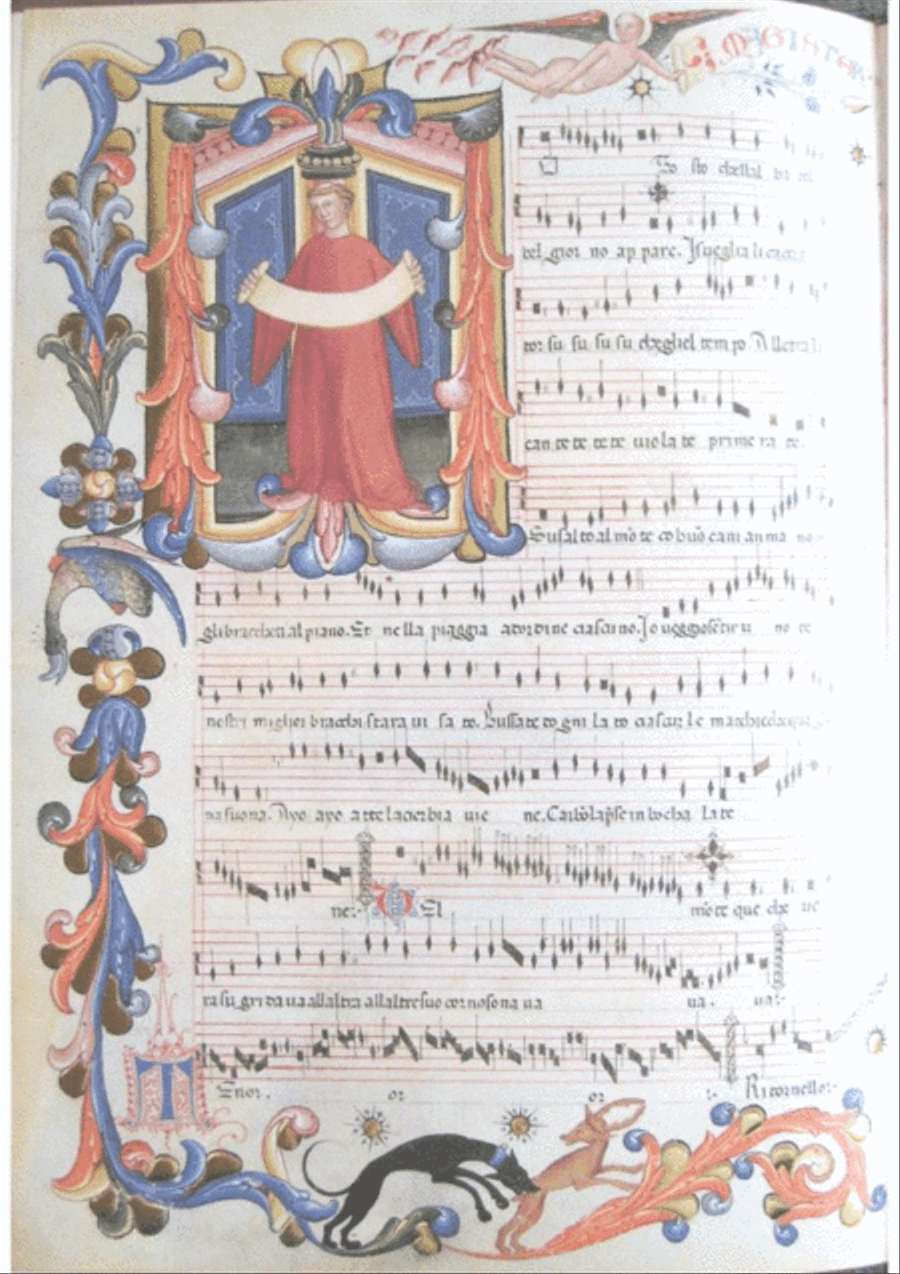 MAGISTER
To sto chellal ba del
bel gior no ap pare. Isueglia li caccia
tor su su su su chegliel tem po. Alletta li
can te te te te uiola te prime ra te.
Susal to al mōte co buō cani an ma no
gli bracchetti al piano. Et nella piaggia ator dine ciascuno. Io ueggio no te
nostri miglior bracchi stara ui sa to. Bussate to gni la to ciascun le macchie
na suona. Ayo ayo a te lacerbia uie ne. in bocha la te
ne. El mōte que che ue
ra su gridaua allaltra allaltre suo corno sona ua ua. ua.
T Enor. or or r. Ritornello.